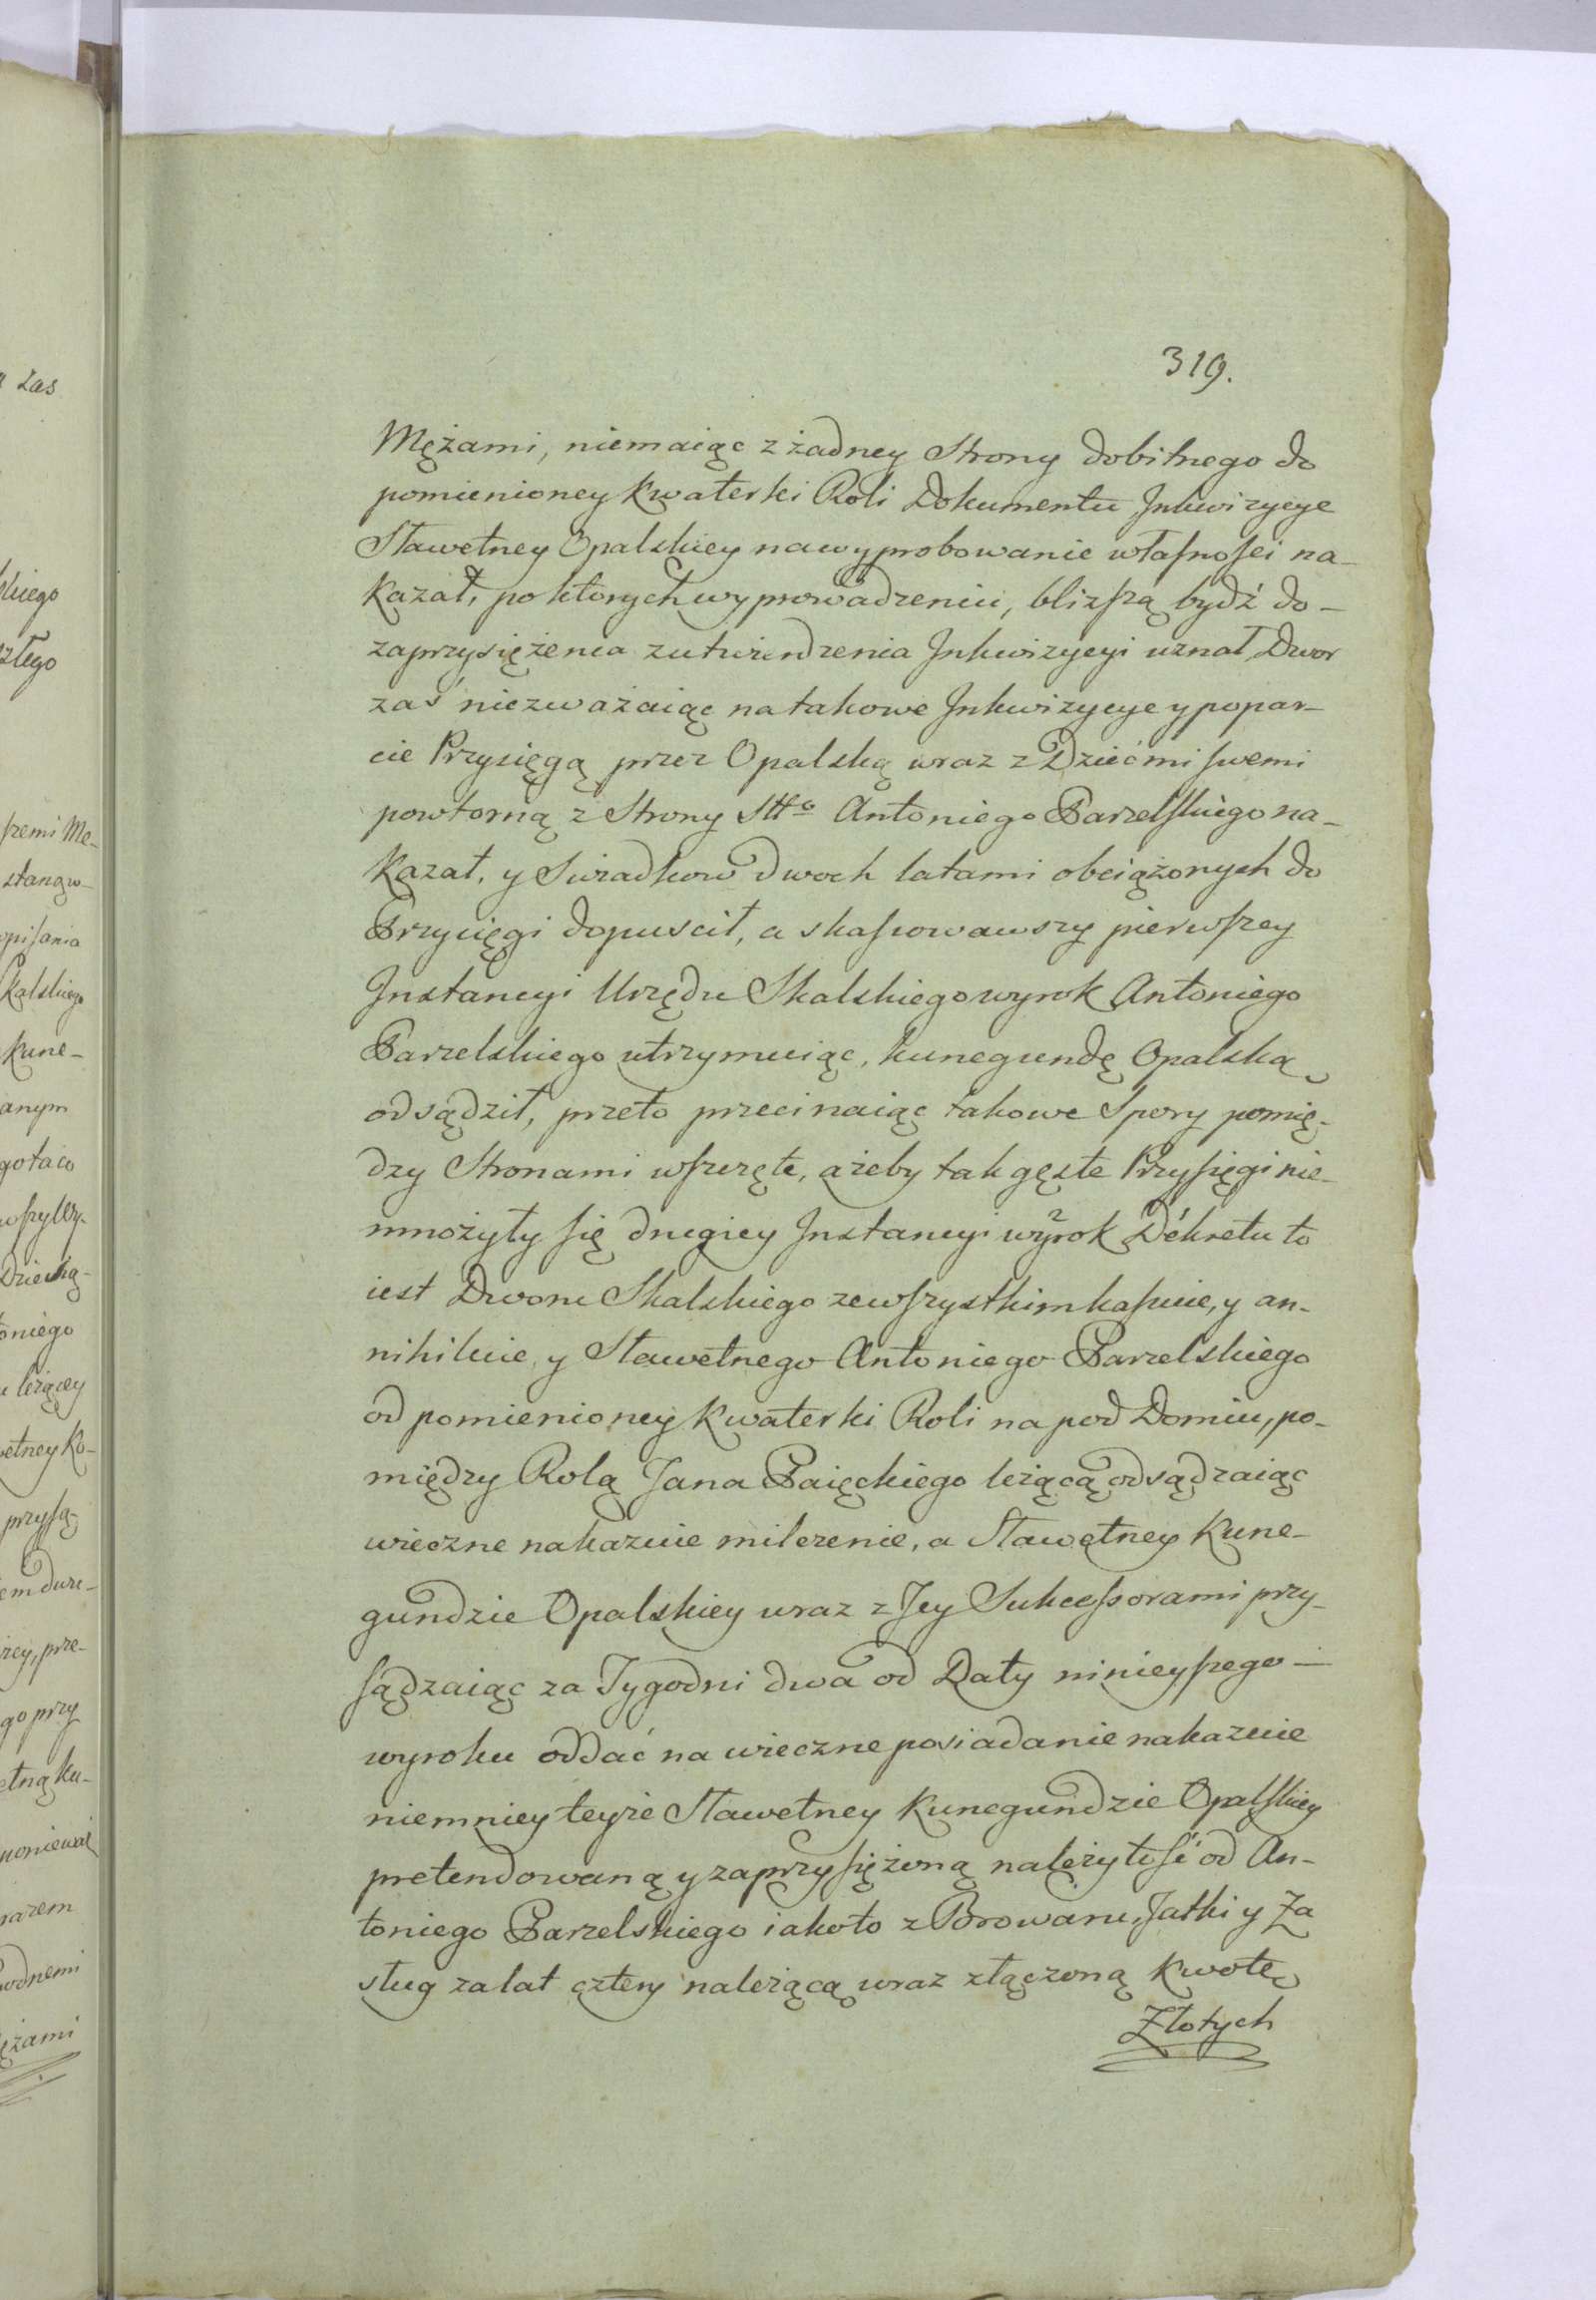 319.
Mężami, niemaiąc z żadney Strony dobitnego do
pomienioney Kwaterki Roli Dokumentu Inkwizycye
Sławetney Opalskiey na wyprobowanie własnosci na-
kazał, po ktorych wyprowadzeniu, bliższą bydź do-
zaprzysiężenia zutwierdzenia Inkwizycyi uznał, Dwor
zaś niezważaiąc na takowe Inkwizycye y popar-
cie Przysięgą przez Opalską wraz z Dziećmi swemi
powtorną z Strony Stto Antoniego Parzelskiego na-
kazał, y Swiadkow dwoch latami obciążonych do
Przycięgi dopuscił, a skassowawszy pierwszey
Instancyi Urzędu Skalskiego wyrok Antoniego
Parzelskiego utrzymuiąc, Kunegundę Opalską
odsądził, przeto przecinaiąc takowe Spory pomię-
dzy Stronami wszczęte, ażeby tak gęste Przysięgi nie-
mnożyły się drugiey Instancyi wyrok Dekretu to
iest Dworu Skalskiego zewszystkim kassuie, y an-
nihiluie, y Sławetnego Antoniego Parzelskiego
od pomienioney Kwaterki Roli na pod Domiu, po-
między Rolą Jana Paięckiego leżącą odsądzaiąc
wieczne nakazuie milczenie, a Sławętney Kune-
gundzie Opalskiey wraz z Jey Sukcessorami przy-
sądzaiąc za Tygodni dwa od Daty ninieyszego -
wyroku oddać na wieczne posiadanie nakazuie
niemniey teyże Sławetney Kunegundzie Opalskiey
pretendowaną y zaprzysiężoną należytość od An-
toniego Parzelskiego iakoto z Browaru, Jatki y Za
sług za lat cztery należącą wraz złączoną Kwotę
Złotych